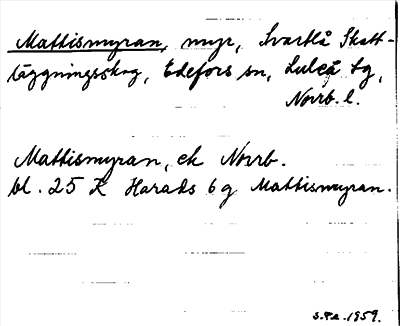 Mattismyran, myr, Svartlå Skatt-
läggningsskog, Edefors sn, Luleå tg,
Norrb. l.
Mattismyran, ek Norrb.
bl. 25 K Harads 6 g Mattismyran.
S.P.a. 1959.